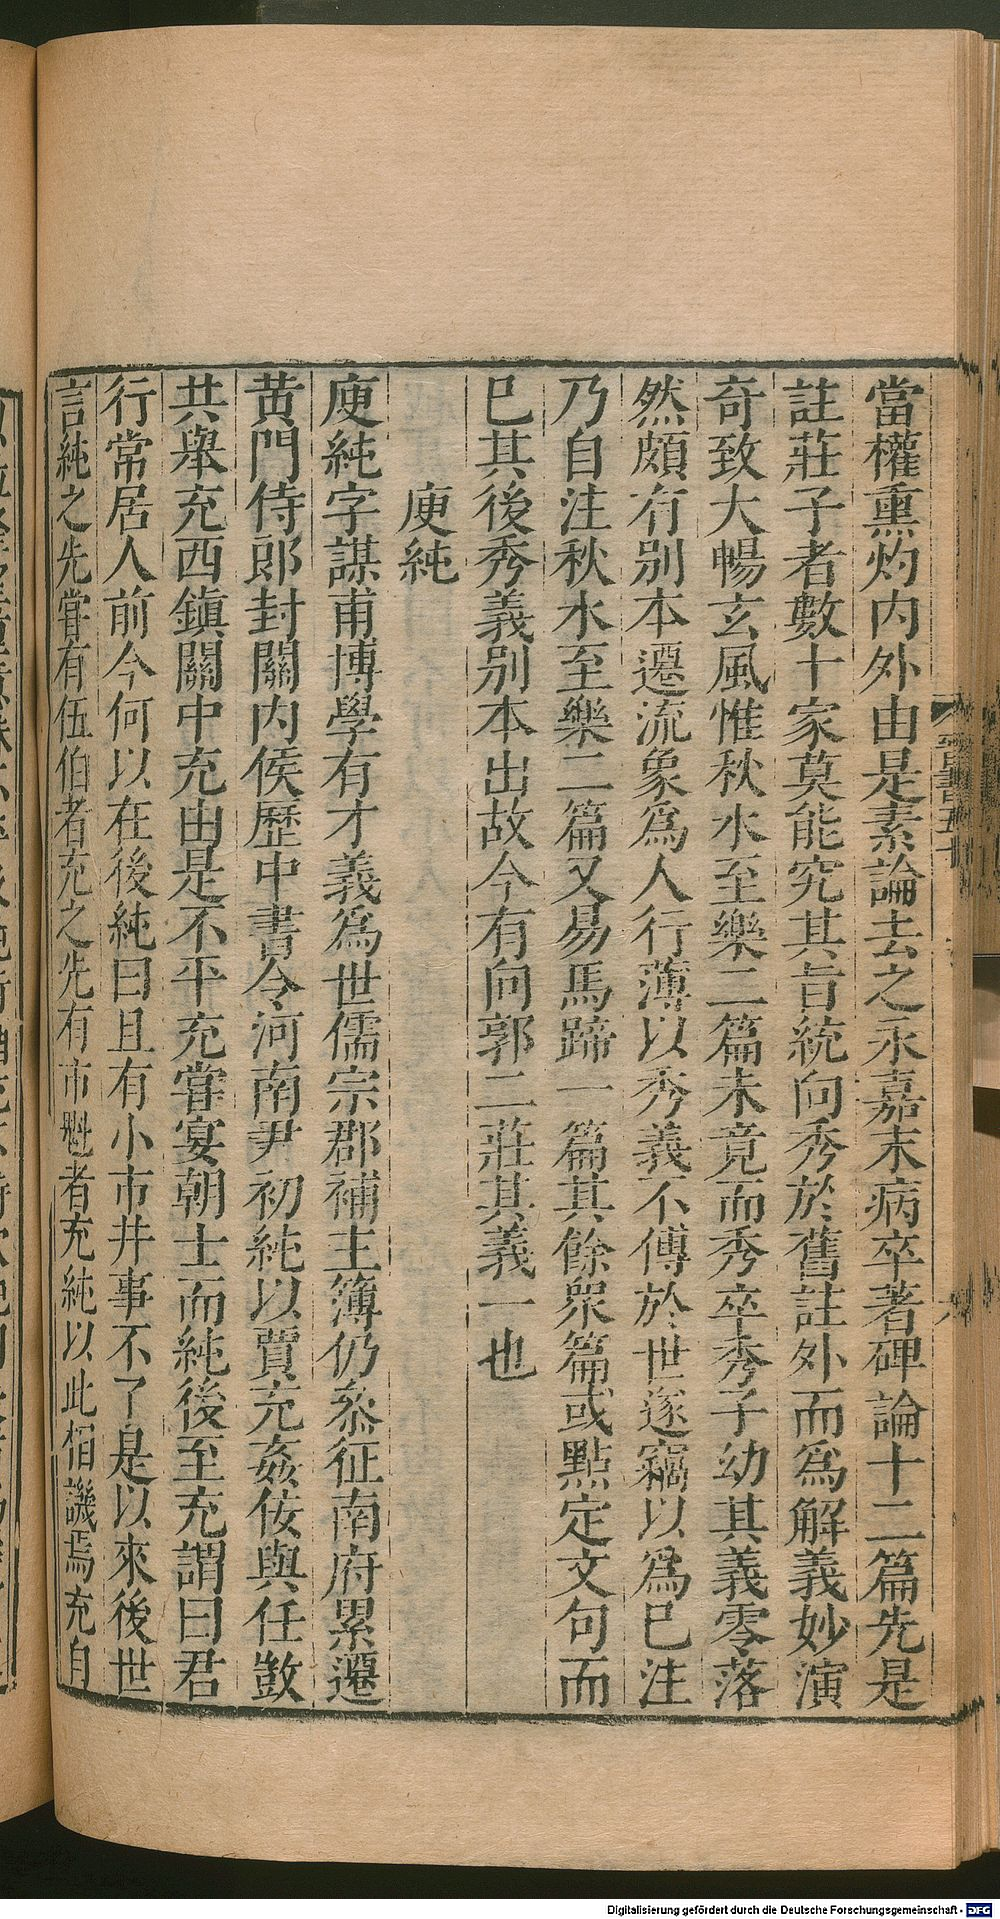 當權熏灼内外由是素論去之永嘉末病卒著碑論十二篇先是
註莊子者數十家莫能究其旨統向秀於舊註外而爲解義妙演
奇致大暢玄風惟秋水至樂二篇未竟而秀卒秀子幼其義零落
然頗有別本遷流象爲人行薄以秀義不傳於世遂竊以爲巳注
乃自注秋水至樂二篇又易馬蹄一篇其餘衆篇或點定文句而
巳其後秀義別本出故今有向郭二莊其義一也
庾純
庾純字謀甫博學有才義爲世儒宗郡補主簿仍叅征南府累遷
黄門侍郎封關内侯歷中書令河南尹初純以賈充姦佞與任敳
共舉充西鎮關中充由是不平充嘗宴朝士而純後至充謂曰君
行常居人前今何以在後純曰且有小市井事不了是以來後世
言純之先嘗有伍伯者充之先有市魁者充純以此相譏焉充自
晉書五十
Digitalisierung gefördert durch die Deutsche Forschungsgemeinschaft - DFG